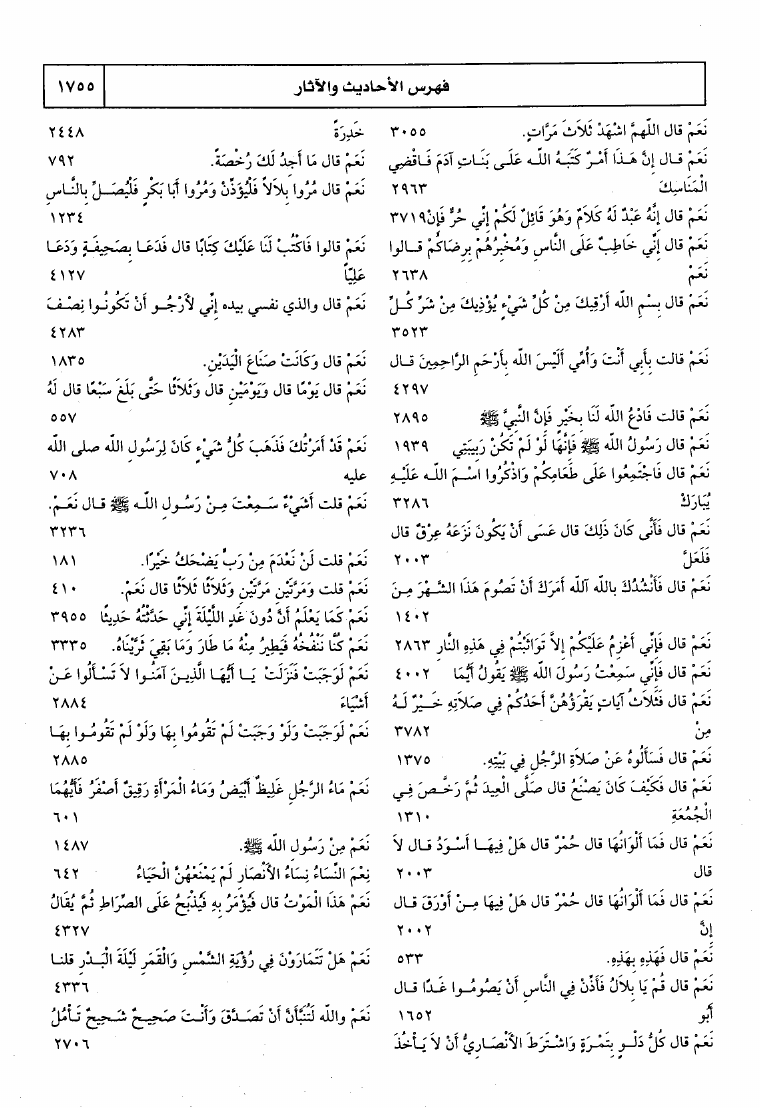 فهرس الأحاديث والآثار ١٧٥٥
نَعَمْ قال اللهمَّ اشْهَدْ ثَلاَثَ مَرَّاتٍ. ٣٠٥٥
نَعَمْ قال إنَّ هَذَا أَمْرٌ كَتَبَهُ اللـه عَلَى بَنَاتِ آدَمَ فَاقْضِي
الْمَنَاسِكَ ٢٩٦٣
نَعَمْ قال إنَّهُ عَبْدٌ لَهُ كَلاَمٌ وَهُوَ قَائِلٌ لَكُمْ إنِّي حُرٌّ فَإِنْ ٣٧١٩
نَعَمْ قال إنِّي خَاطِبٌ عَلَى النَّاسِ وَمُخْبِرُهُمْ بِرِضَاكُمْ قـالوا
نَعَمْ ٢٦٣٨
نَعَمْ قال بِسْمِ الله أَرْقِيكَ مِنْ كُلِّ شَيْءٍ يُؤْذِيكَ مِنْ شَرِّ كُـلِّ
٣٥٢٣
نَعَمْ قالت بِأَبِي أَنْتَ وَأُمِّي أَلَيْسَ الله بِأَرْحَمِ الرَّاحِمِينَ قـال
٤٢٩٧
نَعَمْ قالت فَادْعُ الله لَنَا بِخَيْرٍ فَإِنَّ النَّبِيَّ ﷺ ٢٨٩٥
نَعَمْ قال رَسُولُ الله ﷺ فَإِنَّهَا لَوْ لَمْ تَكُنْ رَبِيبَتِي ١٩٣٩
نَعَمْ قال فَاجْتَمِعُوا عَلَى طَعَامِكُمْ وَاذْكُرُوا اسْـمَ اللـه عَلَيْـهِ
يُبَارَكْ ٣٢٨٦
نَعَمْ قال فَأَنَّى كَانَ ذَلِكَ قال عَسَى أَنْ يَكُونَ نَزَعَهُ عِرْقٌ قال
فَلَعَلَّ ٢٠٠٣
نَعَمْ قال فَأَنْشُدُكَ بالله آلله أَمَرَكَ أَنْ تَصُومَ هَذَا الشَّـهْرَ مِـنَ
١٤٠٢
نَعَمْ قال فَإِنِّي أَعْزِمُ عَلَيْكُمْ إلاَّ تَوَاثَبْتُمْ فِي هَذِهِ النَّارِ ٢٨٦٣
نَعَمْ قال فَإِنِّي سَمِعْتُ رَسُولَ الله ﷺ يَقُولُ أَيُّمَا ٤٠٠٢
نَعَمْ قال فَثَلاَثُ آيَاتٍ يَقْرَؤُهُنَّ أَحَدُكُمْ فِي صَلاَتِهِ خَيْـرٌ لَـهُ
مِنْ ٣٧٨٢
نَعَمْ قال فَسَأَلُوهُ عَنْ صَلاَةِ الرَّجُلِ فِي بَيْتِهِ. ١٣٧٥
نَعَمْ قال فَكَيْفَ كَانَ يَصْنَعُ قال صَلَّى الْعِيدَ ثُمَّ رَخَّـصَ فِـي
الْجُمُعَةِ ١٣١٠
نَعَمْ قال فَمَا أَلْوَانُهَا قال حُمْرٌ قال هَلْ فِيهَـا أَسْـوَدُ قـال لاَ
قال ٢٠٠٣
نَعَمْ قال فَمَا أَلْوَانُهَا قال حُمْرٌ قال هَلْ فِيهَا مِـنْ أَوْرَقَ قـال
إنَّ ٢٠٠٢
نَعَمْ قال فَهَذِهِ بِهَذِهِ. ٥٣٣
نَعَمْ قال قُمْ يَا بِلاَلُ فَأَذِّنْ فِي النَّاسِ أَنْ يَصُومُـوا غَـدًا قـال
أَبُو ١٦٥٢
نَعَمْ قال كُلُّ دَلْـوٍ بِتَمْـرَةٍ وَاشْـتَرَطَ الأَنْصَـارِيُّ أَنْ لاَ يَـأْخُذَ
خَدِرَةً ٢٤٤٨
نَعَمْ قال مَا أَجِدُ لَكَ رُخْصَةً. ٧٩٢
نَعَمْ قال مُرُوا بِلاَلاً فَلْيُؤَذِّنْ وَمُرُوا أَبَا بَكْرٍ فَلْيُصَـلِّ بِالنَّـاسِ
١٢٣٤
نَعَمْ قالوا فَاكْتُبْ لَنَا عَلَيْكَ كِتَابًا قال فَدَعَـا بِصَحِيفَـةٍ وَدَعَـا
عَلِيّاً ٤١٢٧
نَعَمْ قال والذي نفسي بيده إنِّي لأَرْجُـو أَنْ تَكُونُـوا نِصْـفَ
٤٢٨٣
نَعَمْ قال وَكَانَتْ صَنَاعَ الْيَدَيْنِ. ١٨٣٥
نَعَمْ قال يَوْمًا قال وَيَوْمَيْنِ قال وَثَلاَثًا حَتَّى بَلَغَ سَبْعًا قال لَهُ
٥٥٧
نَعَمْ قَدْ أَمَرْتُكَ فَذَهَبَ كُلُّ شَيْءٍ كَانَ لِرَسُولِ الله صلى الله
عليه ٧٠٨
نَعَمْ قلت أَشَيْءٌ سَـمِعْتَ مِـنْ رَسُـولِ اللـه ﷺ قـال نَعَـمْ.
٣٢٣٦
نَعَمْ قلت لَنْ نَعْدَمَ مِنْ رَبٍّ يَضْحَكُ خَيْرًا. ١٨١
نَعَمْ قلت وَمَرَّتَيْنِ مَرَّتَيْنِ وَثَلاَثًا ثَلاَثًا قال نَعَمْ. ٤١٠
نَعَمْ كَمَا يَعْلَمُ أَنَّ دُونَ غَدٍ اللَّيْلَةَ إنِّي حَدَّثْتُهُ حَدِيثًا ٣٩٥٥
نَعَمْ كُنَّا نَنْفُخُهُ فَيَطِيرُ مِنْهُ مَا طَارَ وَمَا بَقِيَ ثَرَّيْنَاهُ. ٣٣٣٥
نَعَمْ لَوَجَبَتْ فَنَزَلَتْ يَـا أَيُّهَـا الَّذِيـنَ آمَنُـوا لاَ تَسْـأَلُوا عَـنْ
أَشْيَاءَ ٢٨٨٤
نَعَمْ لَوَجَبَتْ وَلَوْ وَجَبَتْ لَمْ تَقُومُوا بِهَا وَلَوْ لَمْ تَقُومُـوا بِهَـا
٢٨٨٥
نَعَمْ مَاءُ الرَّجُلِ غَلِيظٌ أَبْيَضُ وَمَاءُ الْمَرْأَةِ رَقِيقٌ أَصْفَرُ فَأَيُّهُمَا
٦٠١
نَعَمْ مِنْ رَسُولِ الله ﷺ. ١٤٨٧
نِعْمَ النِّسَاءُ نِسَاءُ الأَنْصَارِ لَمْ يَمْنَعْهُنَّ الْحَيَاءُ ٦٤٢
نَعَمْ هَذَا الْمَوْتُ قال فَيُؤْمَرُ بِهِ فَيُذْبَحُ عَلَى الصِّرَاطِ ثُمَّ يُقَالُ
٤٣٢٧
نَعَمْ هَلْ تَتَمَارَوْنَ فِي رُؤْيَةِ الشَّمْسِ وَالْقَمَرِ لَيْلَةَ الْبَـدْرِ قلنـا
٤٣٣٦
نَعَمْ والله لَتُنَبَّأَنَّ أَنْ تَصَـدَّقَ وَأَنْـتَ صَحِيـحٌ شَـحِيحٌ تَـأْمُلُ
٢٧٠٦